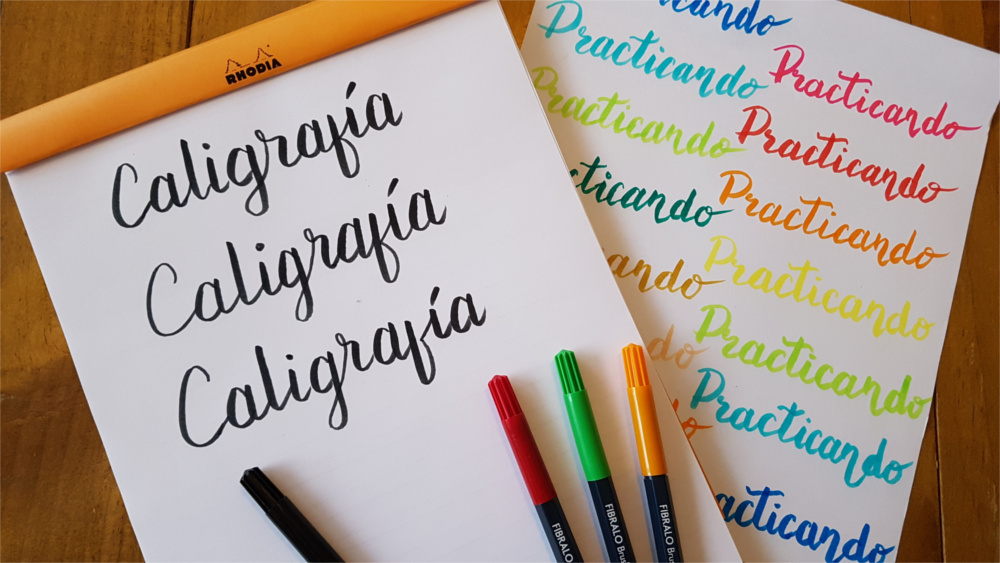 RHODIA
Caligrafía
Caligrafía
Caligrafía
cando
Practicando
Practicando
Practicando
Practicando
cticando
Practicando
ando
Practicando
do
Practicando
Practicando
acticando
FIBRALO
FIBRALO Brus
FIBRALO Brus